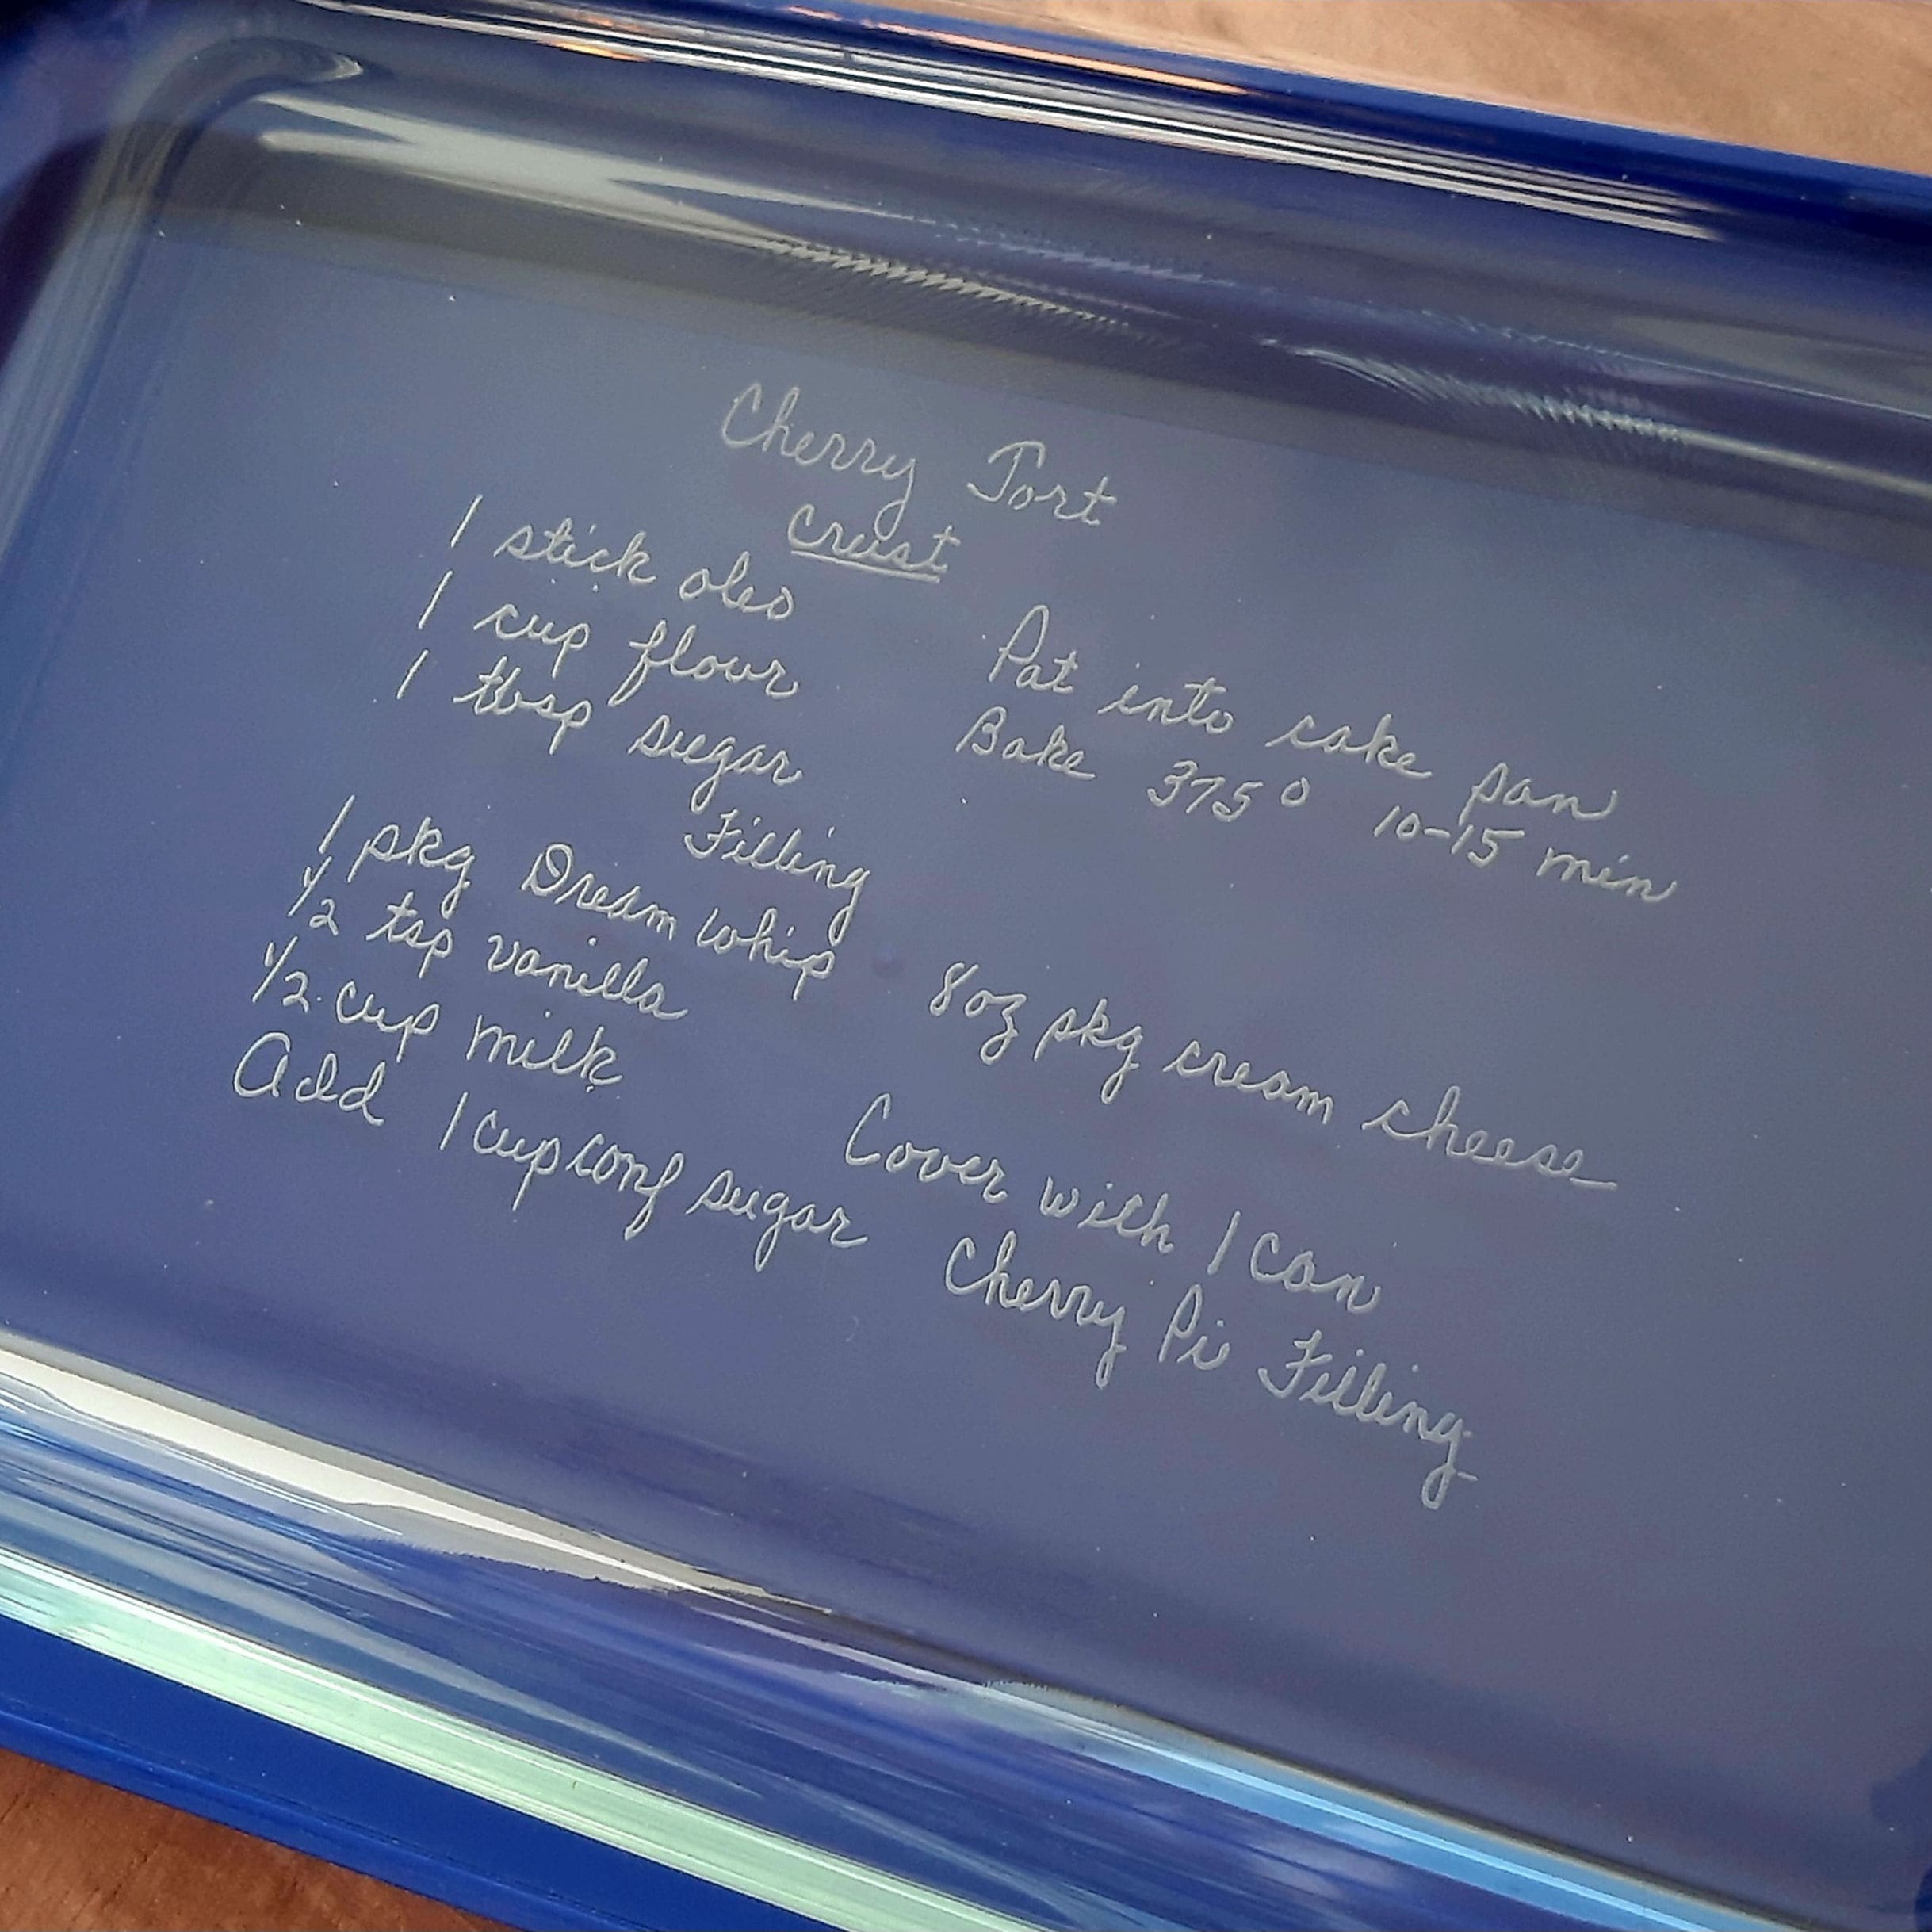 Cherry Tort
Crust
1 stick oleo
1 cup flour
1 tbsp sugar
Pat into cake pan
Bake 375° 10-15 min
Filling
1 pkg Dream Whip
1/2 tsp vanilla
1/2 cup milk
Add 1 cup conf sugar
8oz pkg cream cheese
Cover with 1 can
Cherry Pi Filling